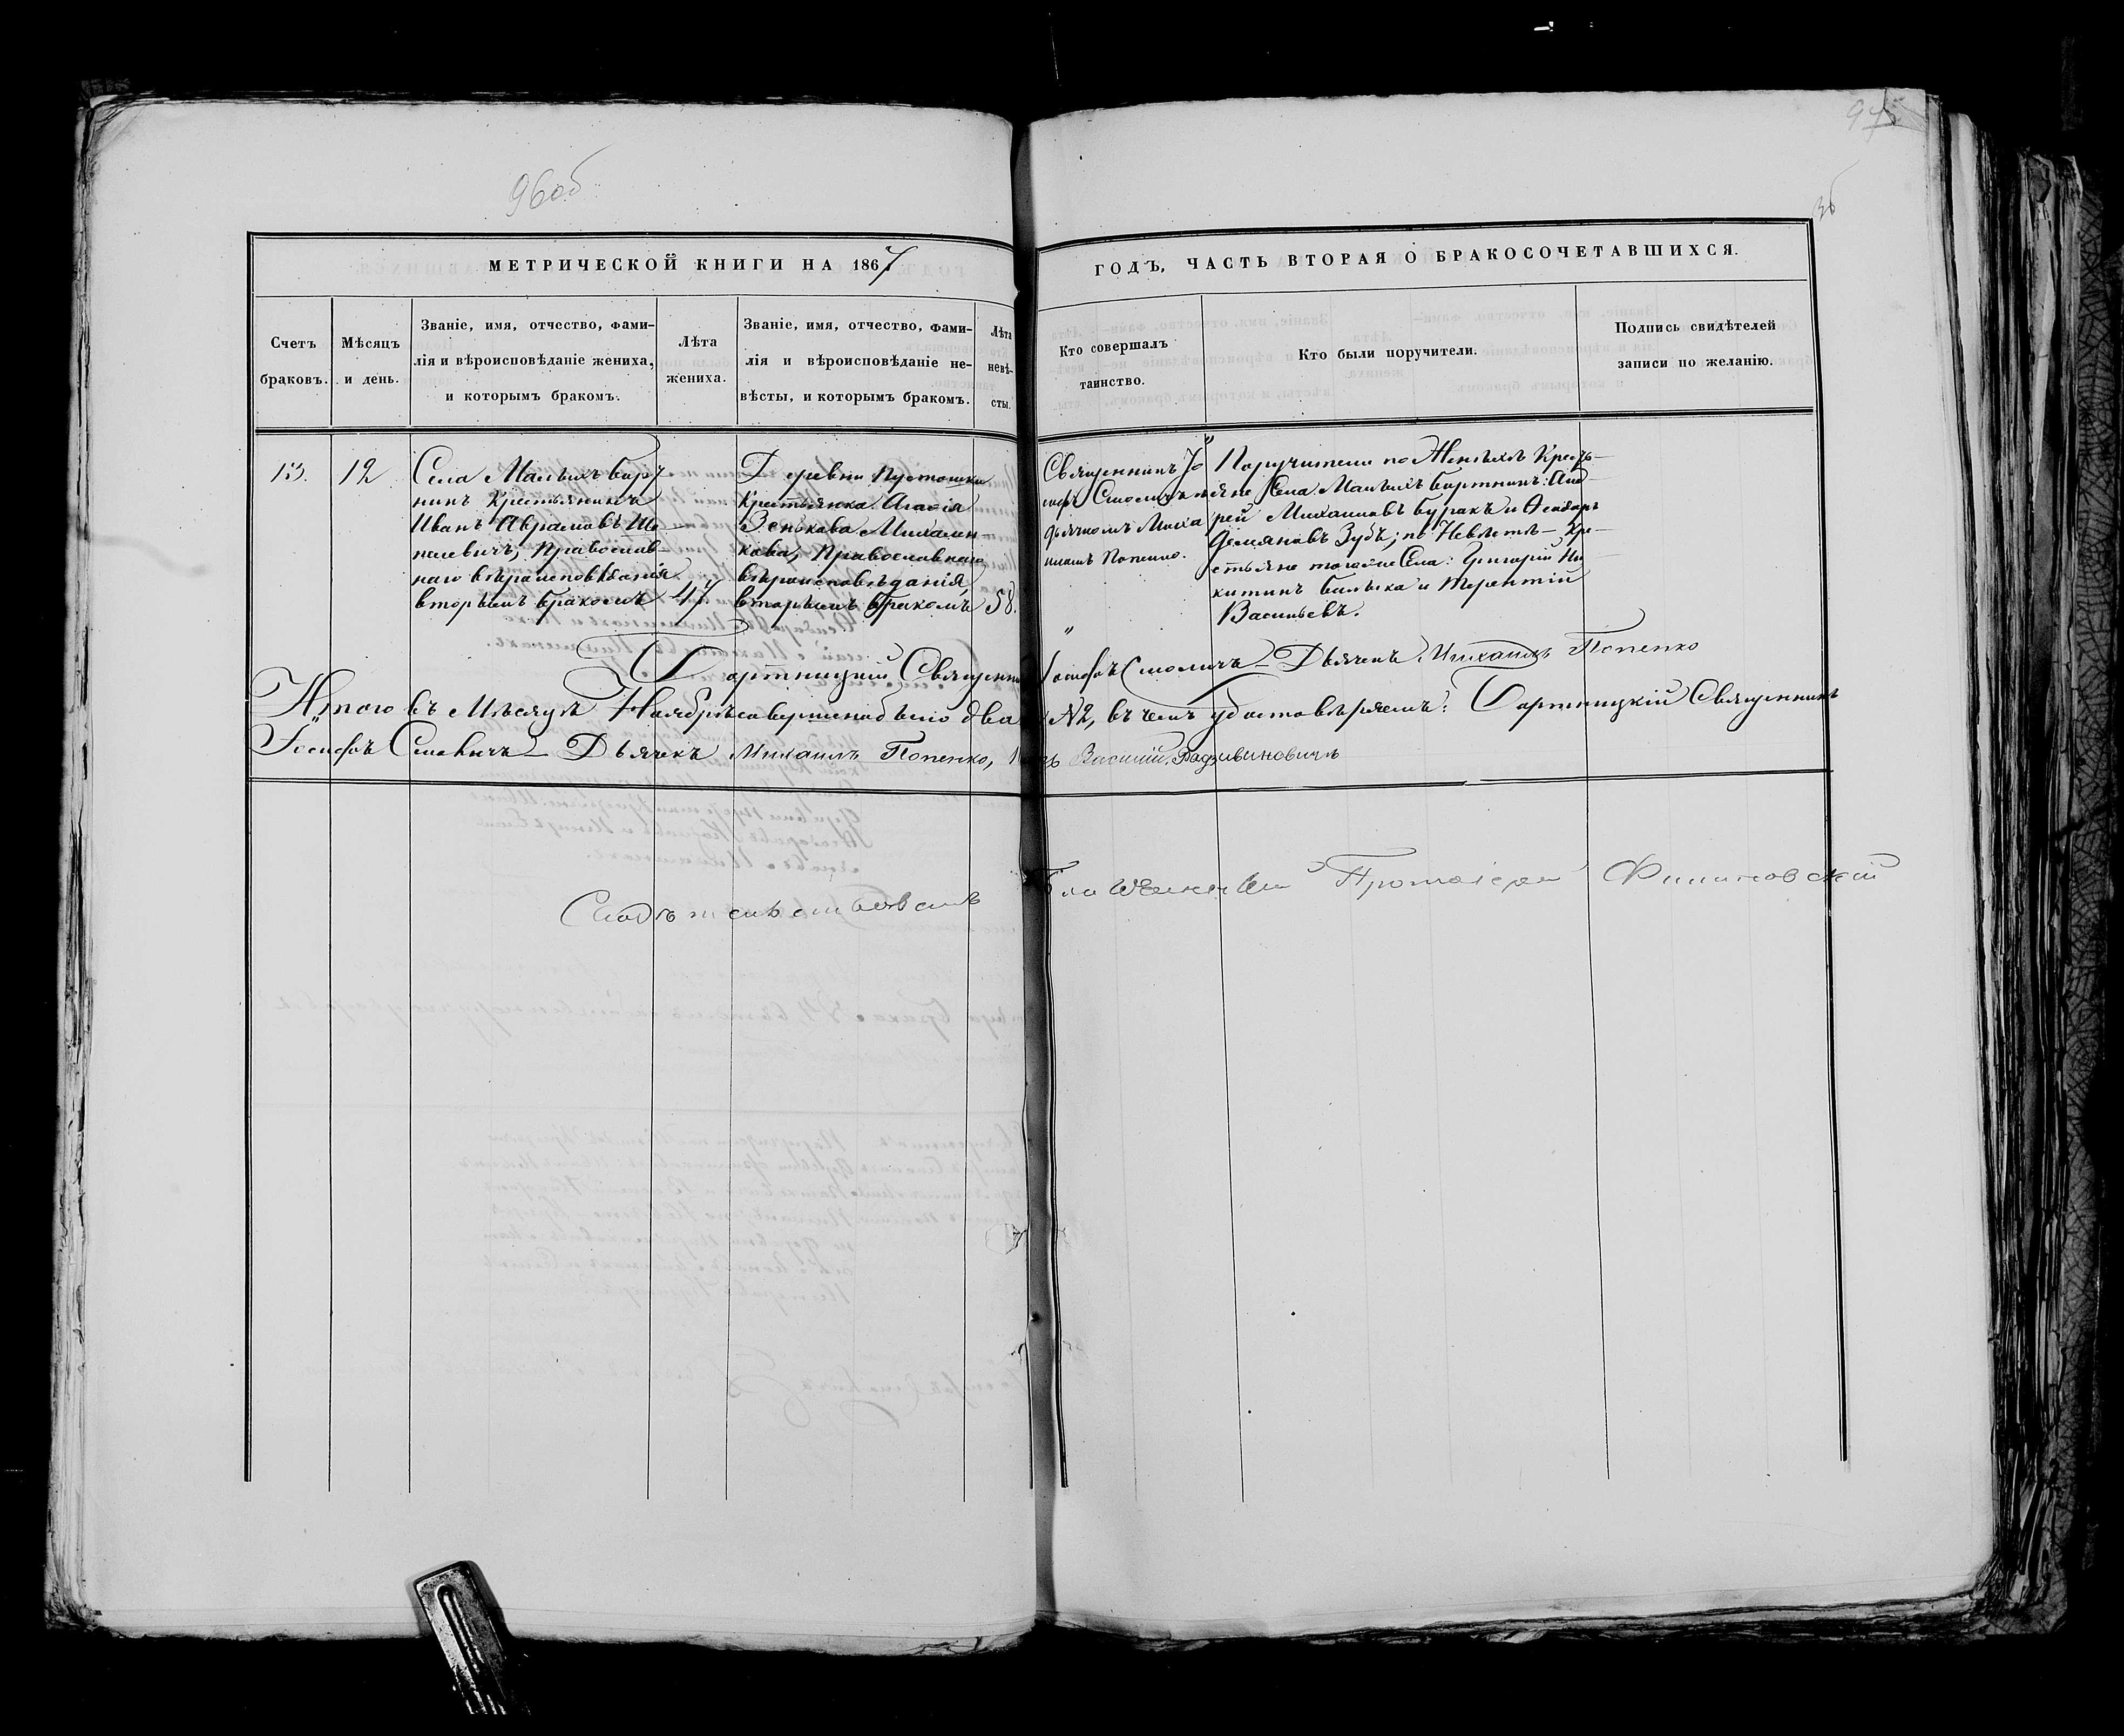 96об
97
МЕТРИЧЕСКОЙ КНИГИ НА 1867
ГОДЪ, ЧАСТЬ ВТОРАЯ О БРАКОСОЧЕТАВШИХСЯ.
Счетъ
браковъ.
Мѣсяцъ
и день.
Званіе, имя, отчество, фами-
лія и вѣроисповѣданіе жениха,
и которымъ бракомъ.
Лѣта
жениха.
Званіе, имя, отчество, фами-
лія и вѣроисповѣданіе не-
вѣсты, и которымъ бракомъ.
Лѣта
невѣ-
сты.
Кто совершалъ
таинство.
Кто были поручители.
Подпись свидѣтелей
записи по желанію.
13.
12
Села Малыхъ Борт
никъ Крестьянинъ
Иванъ Аврамовъ
Православ-
наго вѣроисповѣданія
вторымъ бракомъ
47
Деревни Пустошки
Крестьянка Агафія
Зенькова Михален-
кова, Православнаго
вѣроисповѣданія,
вторымъ бракомъ
58.
Священникъ Іо
сифъ Смоличъ съ
дьячкомъ Миха
иломъ Попенко.
Поручители по Женихѣ Кресть-
яне Села Малыхъ Бортникъ: Анд
рей Михаиловъ Буракъ и Ѳеодоръ
Демяновъ Зубъ; по Невѣстѣ — Кре-
стьяне того же Села: Григорій Ни
китинъ и Терентій
Васильевъ.
Бортницкій Священникъ Іосифъ Смоличъ — Дьячекъ Михаилъ Попенко
Итого въ Мѣсяцѣ Ноябрѣ совершено было два №2, въ чемъ удостовѣряемъ: Бортницкій Священникъ
Іосифъ Смоличъ — Дьячекъ Михаилъ Попенко, Василій
Свидѣтельствовалъ Благочинный Протоіерей